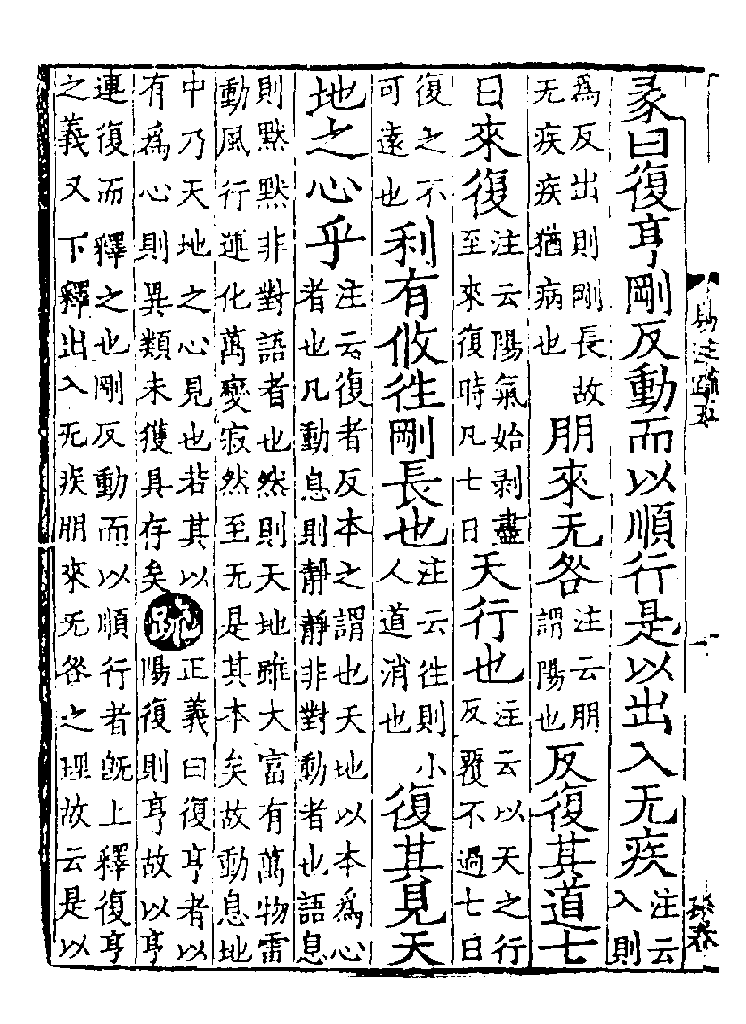 彖曰復亨剛反動而以順行是以出入无疾注云入則
為反出則剛長故无疾疾猶病也朋來无咎注云朋謂陽也反復其道七
日來復注云陽氣始剥盡至來復時凡七日天行也注云以天之行反覆不過七日
復之不可遠也利有攸往剛長也注云往則小人道消也復其見天
地之心乎注云復者反本之謂也天地以本為心者也凡動息則静静非對動者也語息
則默默非對語者也然則天地雖大富有萬物雷動風行運化萬變寂然至无是其本矣故動息地
中乃天地之心見也若其以有為心則異類未獲具存矣疏正義曰復亨者以陽復則亨故以亨
連復而釋之也剛反動而以順行者旣上釋復亨之義又下釋出入无疾朋來无咎之理故云是以
易注疏五
一